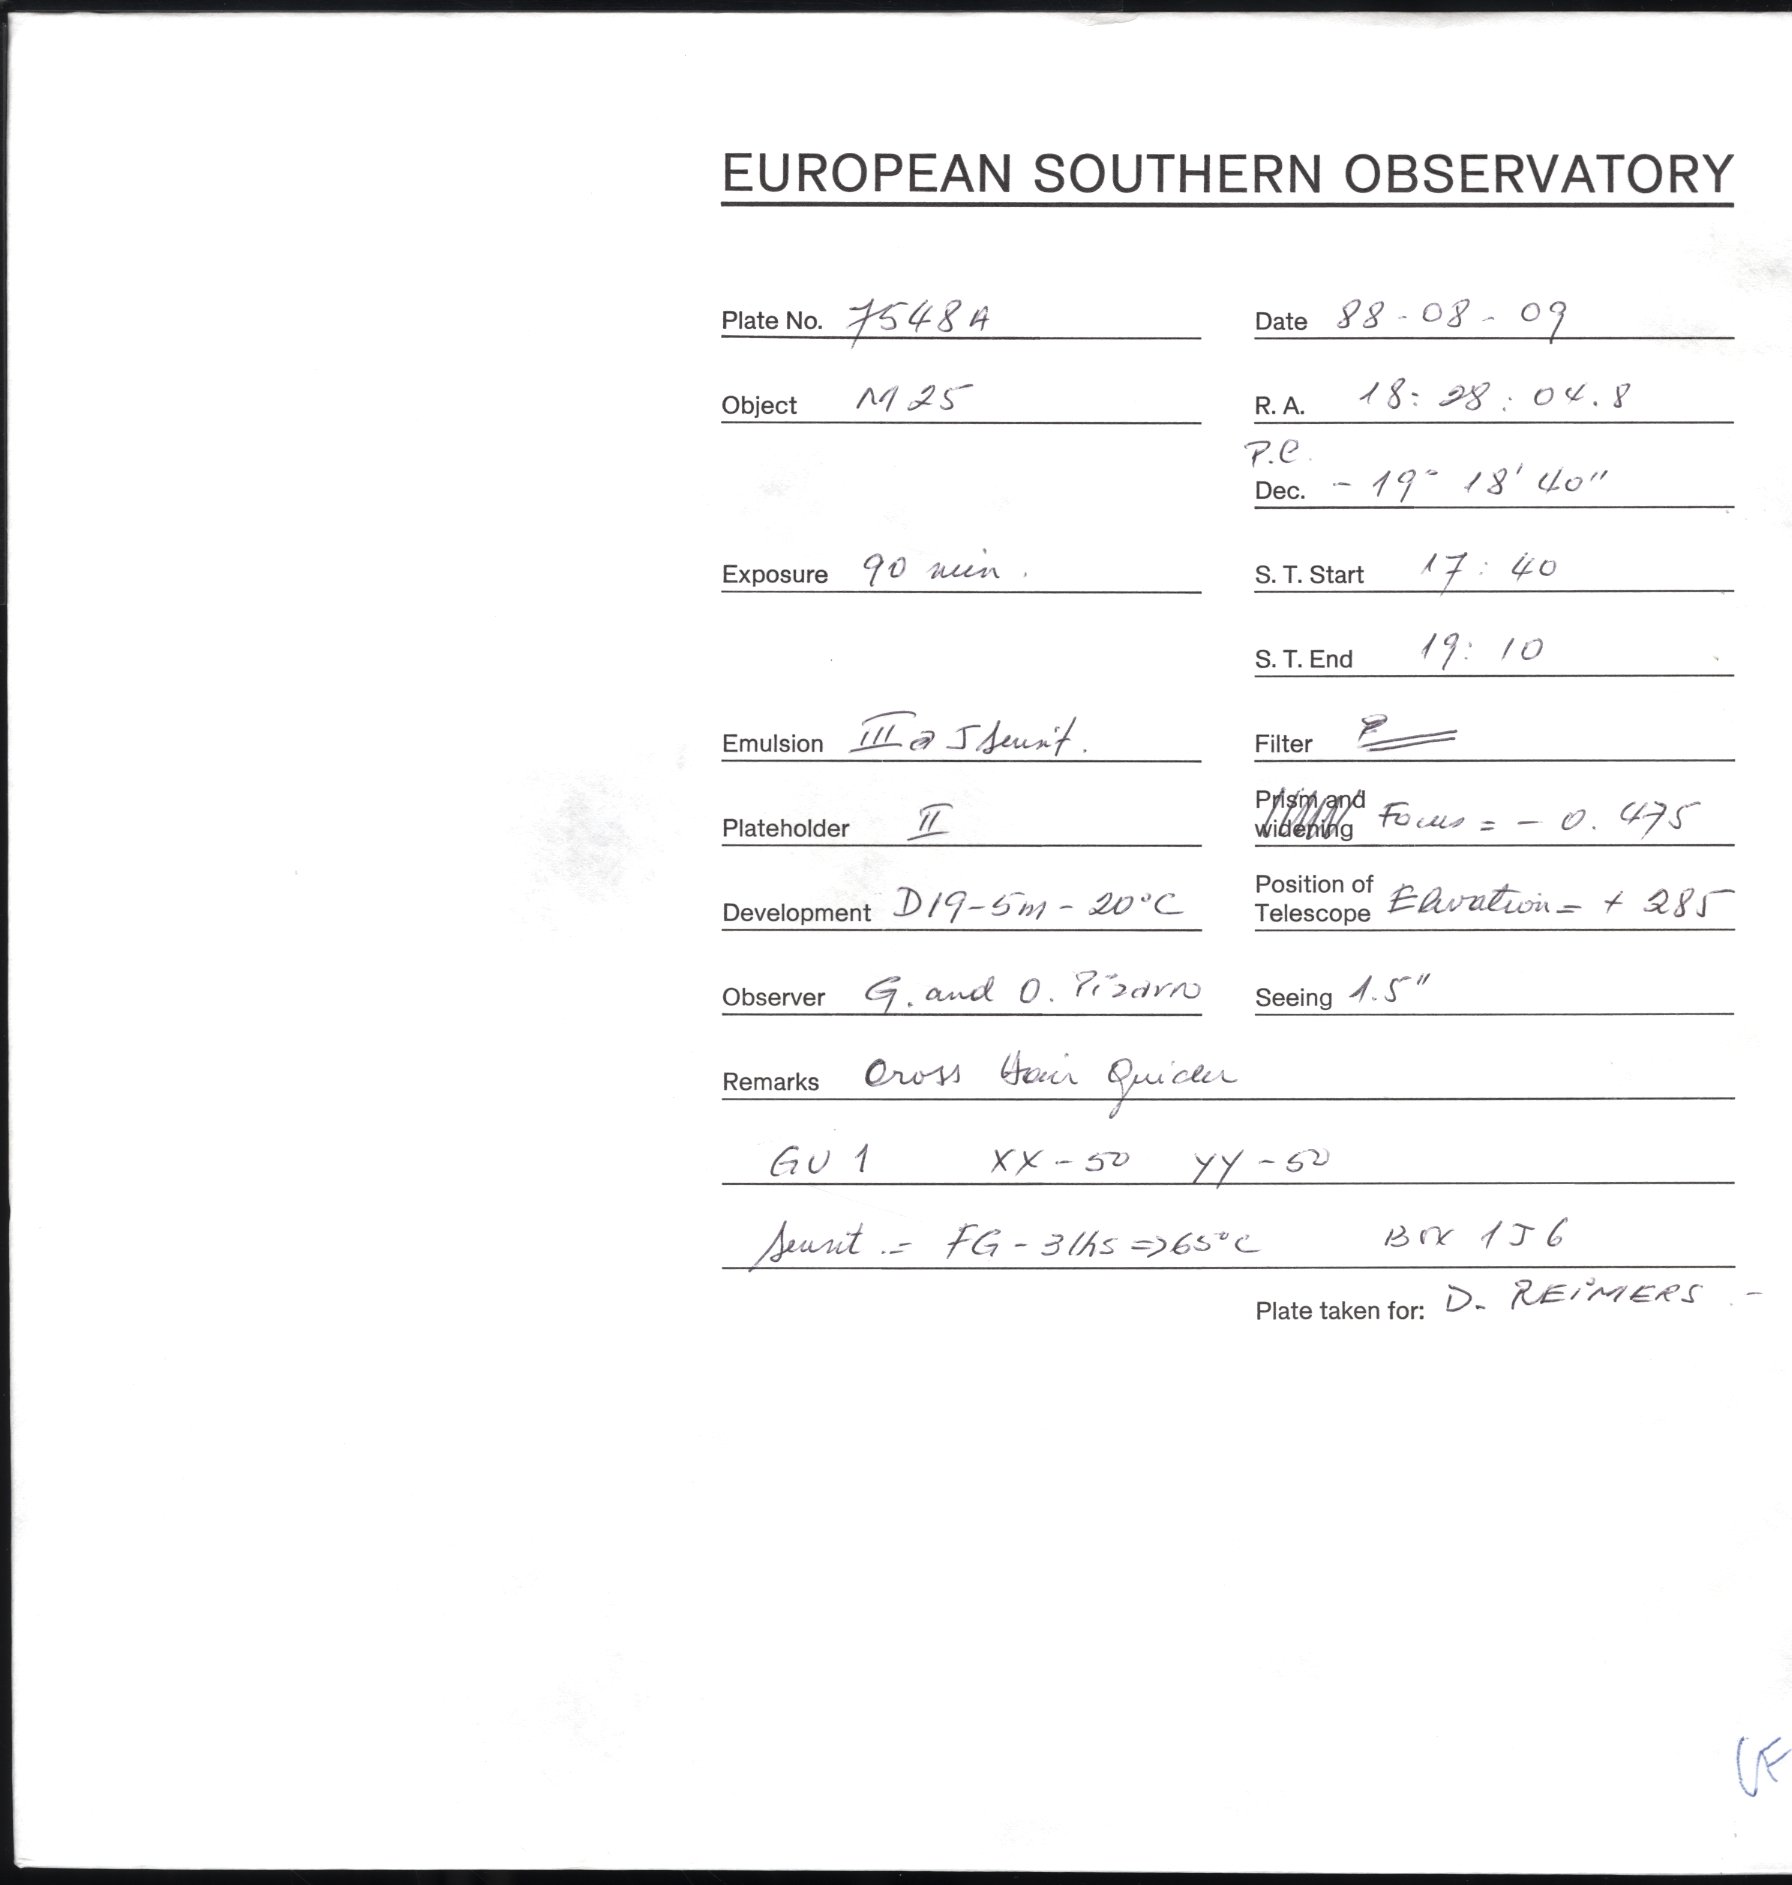 EUROPEAN SOUTHERN OBSERVATORY
Plate No. 7548A Date 88-08-09
Object M 25 R. A. 18: 28: 04.8
P.C.
Dec. - 19° 18' 40"
Exposure 90 min. S. T. Start 17: 40
S. T. End 19: 10
Emulsion III a J sensit. Filter
Plateholder II Prism and widening Focus = - 0.475
Development D19-5m-20°C Position of Telescope Elevation= + 285
Observer G. and O. Pizarro Seeing 1.5"
Remarks Cross Hair Guider
GU 1 XX-50 YY-50
sensit.= FG-3 1hs =>65°C Box 1J6
Plate taken for: D. REIMERS -